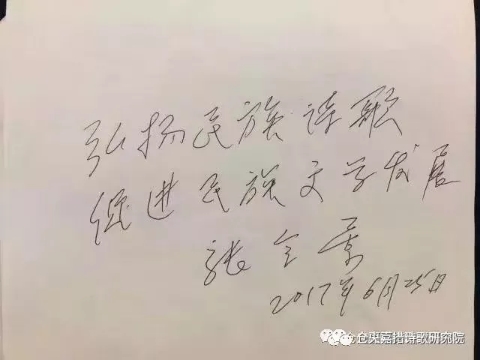 弘扬民族诗歌
促进民族文学发展
张全景
2017年6月25日
仓央嘉措诗歌研究院